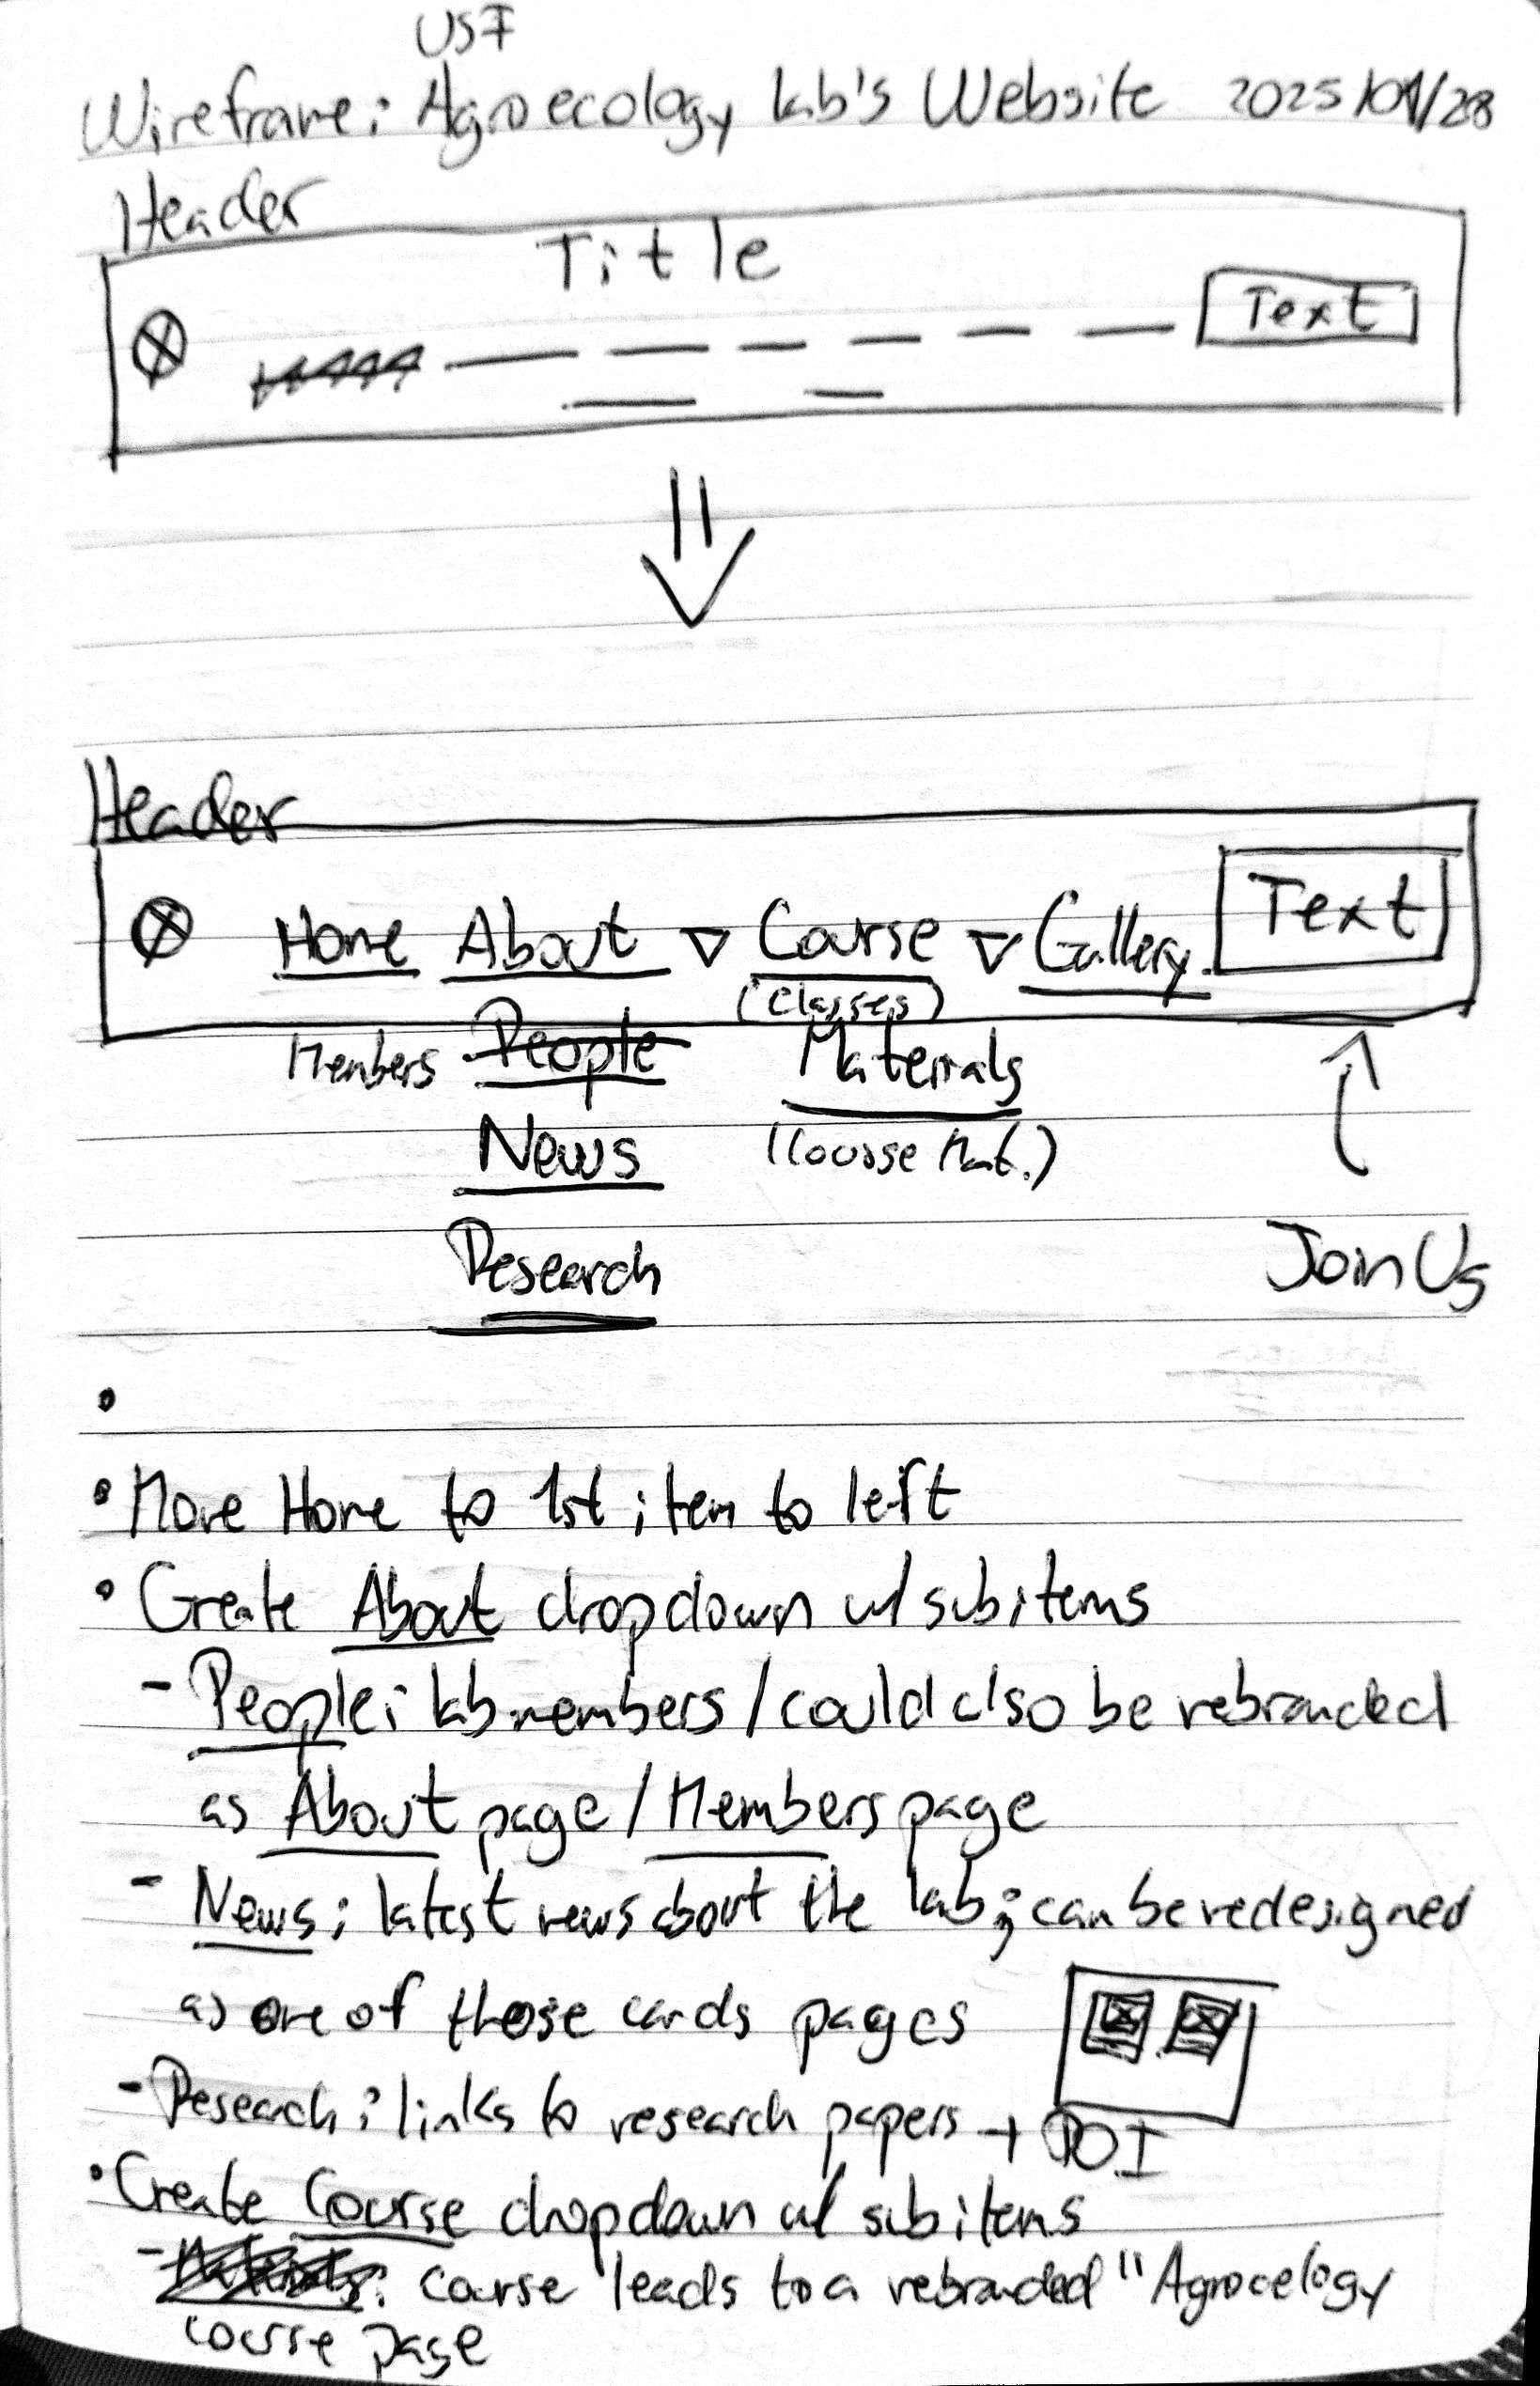 USF
Wireframe: Agroecology Lab's Website 2025/01/28
Header
Title
Text
Header
Home About ▽ Course ▽ Gallery Text
(Classes)
Members People Materials
News (Course Mat.)
Research Join Us
• Move Home to 1st item to left
• Create About dropdown w/ subitems
- People: lab members / could also be rebranded
as About page / Members page
- News: latest news about the lab; can be redesigned
as one of those cards pages
- Research: links to research papers + DOI
• Create Course dropdown w/ subitems
- : course leads to a rebranded "Agrocelogy
course page